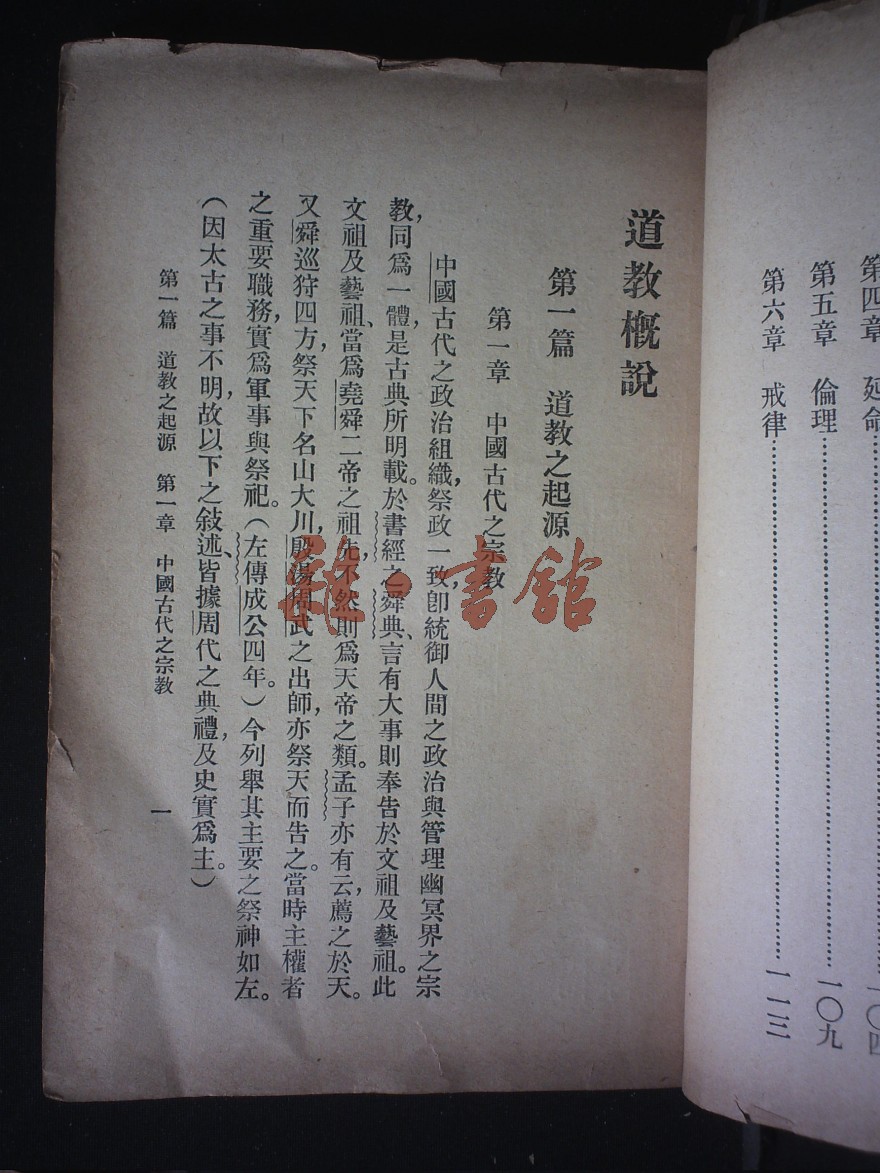 第四章 延命…………一〇四
第五章 倫理…………一〇九
第六章 戒律…………一一三
道教概說
第一篇 道教之起源
第一章 中國古代之宗教
中國古代之政治組織，祭政一致，卽統御人間之政治與管理幽冥界之宗
教，同爲一體，是古典所明載。於書經之舜典、言有大事則奉告於文祖及藝祖。此
文祖及藝祖、當爲堯舜二帝之祖先，不然則爲天帝之類。孟子亦有云，薦之於天。
又舜巡狩四方，祭天下名山大川，殷湯周武之出師，亦祭天而告之。當時主權者
之重要職務，實爲軍事與祭祀。（左傳成公四年。）今列舉其主要之祭神如左。
（因太古之事不明，故以下之敍述、皆據周代之典禮，及史實爲主。）
第一篇 道教之起源 第一章 中國古代之宗教
一
雜·書館